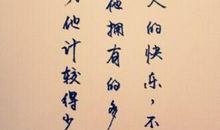 人的快乐，不
他拥有的多
为他计较得少